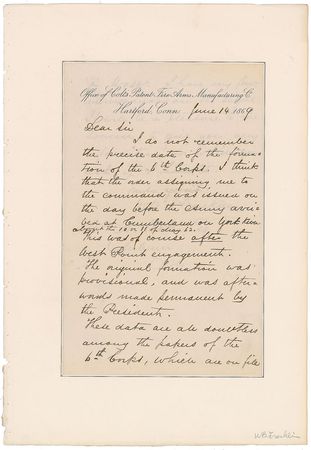 Office of Colt's Patent Fire Arms Manufacturing Co.
Hartford, Conn. June 14 1869
Dear Sir
I do not remember
the precise date of the forma-
tion of the 6th Corps. I think
that the order assigning me to
the command was issued on
the day before the Army arri-
ved at Cumberland on York river
about the 10 or 11 of May 62.
This was of course after the
West Point engagement.
The original formation was
provisional, and was after-
wards made permanent by
the President.
These data are all doubtless
among the papers of the
6th Corps, which are on file
WB Franklin